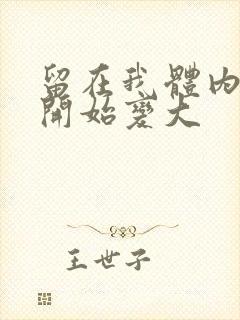 留在我體內
開始變大
王世子